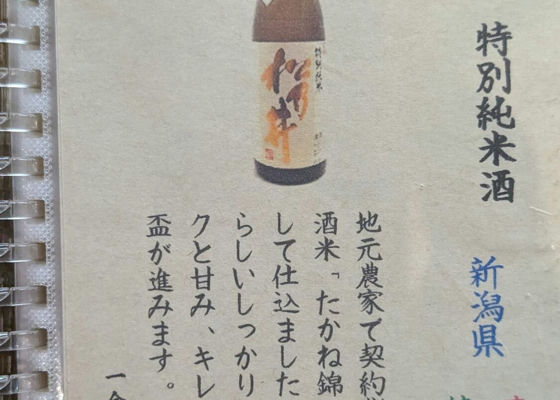 特別純米酒　新潟県
特別純米
松乃井
地元農家で契約
酒米「たかね錦
して仕込みました
らしいしっかり
クと甘み、キレ
盃が進みます。
一